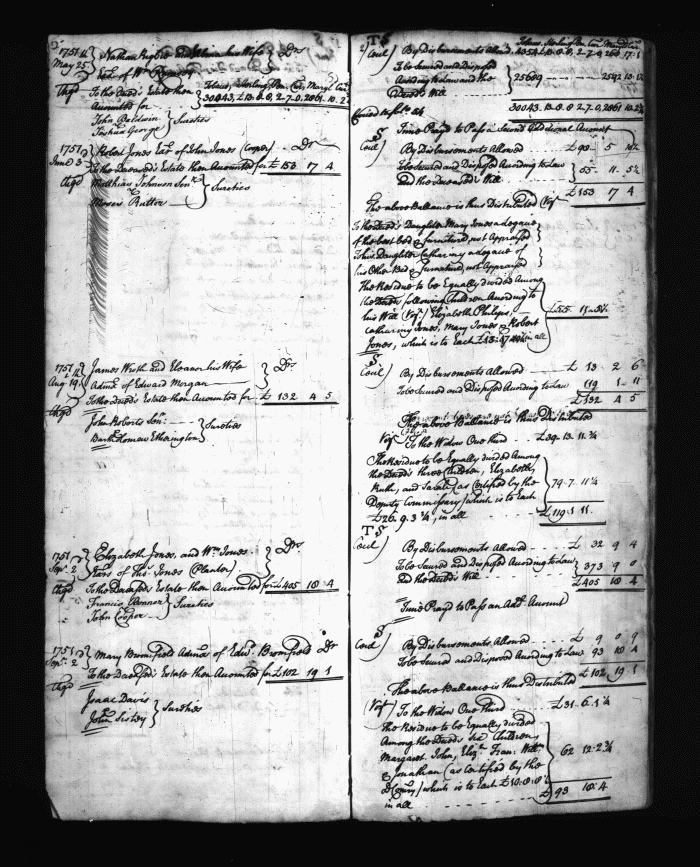 1751
May 25
Nathan Rigbie and his Wife Dr.
Ex. of Wm
Chgd To the Decd's Estate then
Accounted for
Tobacco, Sterling,
30043, £13.0.8, 2-7-0, 2861.10.2
John Baldwin
Joshua George
Sureties
1751
June 3
Robert Jones Exr. of John Jones (Cooper) Dr
Chgd To the Deceased's Estate then Accounted for £153 17 4
Matthias Johnson Senr.
Moses Ruttor
Sureties
1751
Aug. 19
James Wroth and Eleanor his Wife
Admx. of Edward Morgan
Dr.
Chgd To the Decd's Estate then Accounted for £132 4 5
John Roberts Senr.
Bartholomew Etherington
Sureties
1751
Sepr. 2
Elizabeth Jones, and Wm. Jones
Exrs. of Thos. Jones (Planter)
Dr.
Chgd To the Deceased's Estate then Accounted for £405 10 4
Francis Bonner
John Cooper
Sureties
1751
Sepr. 2
Mary Bromfield Admx. of Edwd. Bromfield Dr
Chgd To the Deceased's Estate then Accounted for £102 19 1
Isaac Davis
John Sisley
Sureties
TS
Cecil) By Disbursements Allowd.
To be Secured and Disposed
According to Law and the
Deced's Will
25689
30043. £13.0.8 2-7-0, 2861.10.2
Time Prayd to Pass a Second Additional Account
S
Cecil) By Disbursements Allowed £98 5
To be Secured and Disposed According to Law
and the Deceased's Will
55 11 5½
£153 17 4
The above Ballance is thus Distributed (Vizt
To the Deced's Daughter Mary Jones a Legacie
of the best bed & furniture, not Appraised
To his Daughter Catharine a Legacie of
his Other Bed & Furniture, not Appraised
The Residue to be Equally divided Among
the following Children According to
his Will (Vizt.) Elizabeth Philips,
Catharine Jones, Mary Jones & Robert
Jones, which is to Each in all
£55 11 5½
S
Cecil) By Disbursements Allowed £ 13 2 6
To be Secured and Disposed According to Law 119 1 11
£132 4 5
The above Ballance is thus Distributed
Vizt. To the Widow One third £39.13.11¾
The Residue to be Equally divided Among
the Deced's three Children, Elizabeth,
Ruth, and Sarah (as Certified by the
Deputy Commissary) which is to Each
£26.9.3¾, in all
79-7.11¼
£119 1 11
TS
Cecil) By Disbursements Allowed £ 32 9 4
To be Secured and Disposed According to Law
and the Deced's Will
373 9 0
£405 10 4
Time Prayd to Pass an Addl. Account
S
Cecil) By Disbursements Allowed £ 9 0 9
To be Secured and Disposed According to Law 93 10 4
£102 19 1
The above Ballance is thus Distributed
(Vizt) To the Widow One third £31.6.1¼
The Residue to be Equally divided
Among the Deced's Six Children,
Margaret, John, Elizt. Fran: Willm.
& Jonathan (as certified by the
D Comry) which is to Each
in all
62 12.2¾
£93 10.4